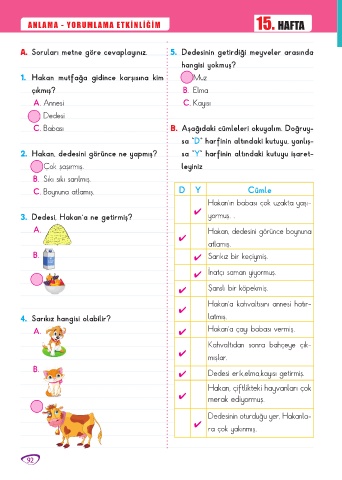 ANLAMA - YORUMLAMA ETKİNLİĞİM
15. HAFTA
A. Soruları metne göre cevaplayınız.
1. Hakan mutfağa gidince karşısına kim
çıkmış?
A. Annesi
Dedesi
C. Babası
2. Hakan, dedesini görünce ne yapmış?
Çok şaşırmış.
B. Sıkı sıkı sarılmış.
C. Boynuna atlamış.
3. Dedesi, Hakan'a ne getirmiş?
A.
B.
4. Sarıkız hangisi olabilir?
A.
B.
5. Dedesinin getirdiği meyveler arasında
hangisi yokmuş?
Muz
B. Elma
C. Kayısı
B. Aşağıdaki cümleleri okuyalım. Doğruy-
sa "D" harfinin altındaki kutuyu, yanlış-
sa "Y" harfinin altındaki kutuyu işaret-
leyiniz
D Y Cümle
Hakan'ın babası çok uzakta yaşı-
yormuş.
Hakan, dedesini görünce boynuna
atlamış.
Sarıkız bir keçiymiş.
İnatçı saman yiyormuş.
Şanslı bir köpekmiş.
Hakan'a kahvaltısını annesi hatır-
latmış.
Hakan'a çayı babası vermiş.
Kahvaltıdan sonra bahçeye çık-
mışlar.
Dedesi erik,elma,kayısı getirmiş.
Hakan, çiftlikteki hayvanları çok
merak ediyormuş.
Dedesinin oturduğu yer, Hakanla-
ra çok yakınmış.
92